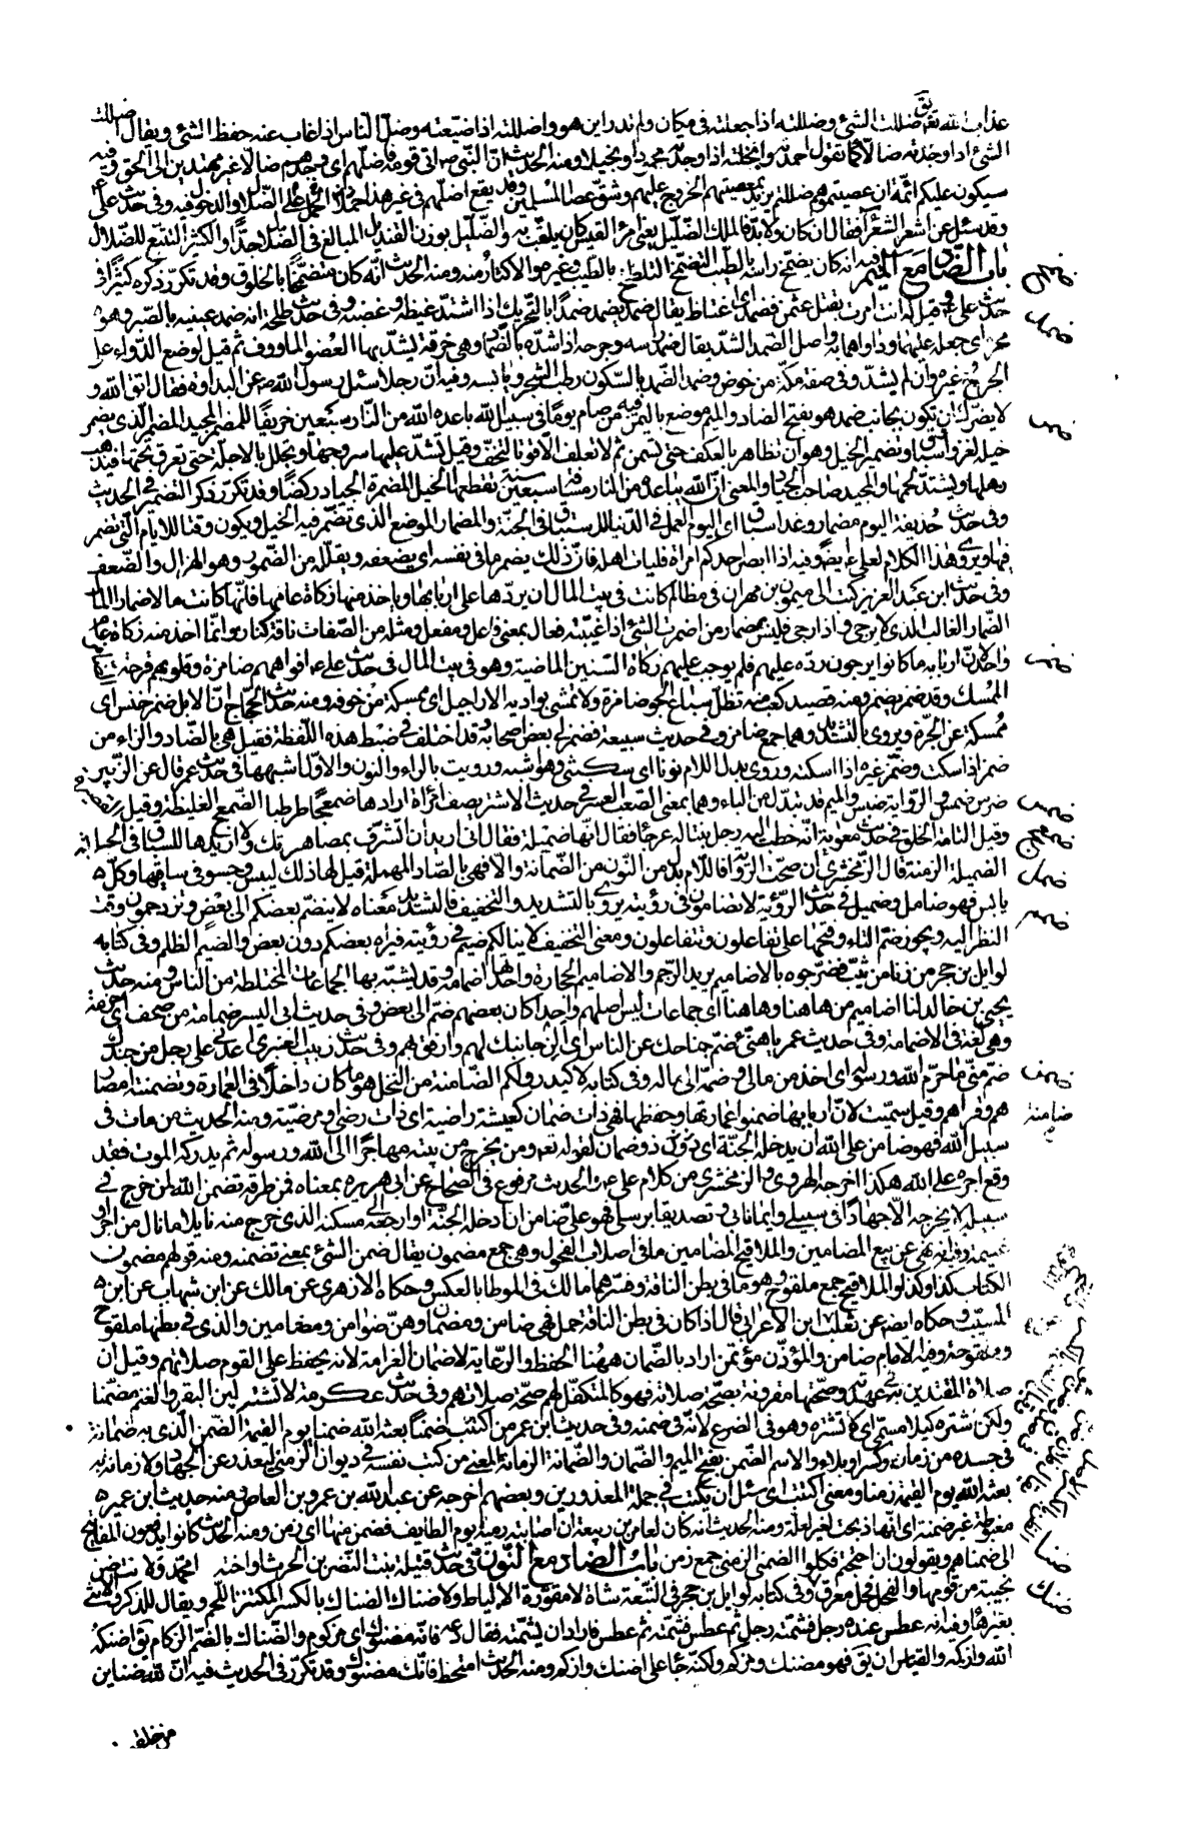 عذاب الله يق ضللت الشئ وضللته اذا جعلته فى مكان ولم تدر اين هو واضللته اذا ضيّعته وضلّ الناس اذا غاب عنه حفظ الشئ ويقال اضللت
الشئ اذا وجدته ضالّا كما تقول احمدته وابخلته اذا وجدته محمودا وبخيلا ومنه الحديث انّ النبى اتى قومه فاضلّهم اى وجدهم ضالّا غير مهتدين الى الحق وفيه
سيكون عليكم ائمّة ان عصيتموهم ضللتم يريد بمعصيتهم الخروج عليهم وشقّ عصا المسلمين وقد يقع اضلّهم فى غير هذا الحمل على الضلال والدخول فيه وفى حديث على
وقد سئل عن اشعر الشعراء فقال ان كان ولا بدّ فالملك الضلّيل يعنى امرأ القيس كان يلقّب به والضلّيل بوزن القنديل المبالغ فى الضلال جدّا والكثير التتبع للضلال
باب الضاد مع الميم فيه انه كان يضمّخ راسه بالطيب التضمّخ التلطخ بالطيب وغيره والاكثار منه ومنه الحديث انّه كان متضمّخا بالخلوق وقد تكرّر ذكره كثيرا فى
حديث على وقيل له انت امرت بقتل عثمن فضمد اى اغتاظ يقال ضمد يضمد ضمدا بالتحريك اذا اشتدّ غيظه وغضبه وفى حديث طلحة انه ضمد عينيه بالصبر وهو
محرم اى جعله عليهما وداواهما به واصل الضمد الشدّ يقال ضمد راسه وجرحه اذا شدّه بالضماد وهى خرقة يشدّ بها العضو الماووف ثم قيل لوضع الدواء على
الجرح وغيره وان لم يشدّ وفى صفة مكّة من خوص وضمد الضمد بالسكون رطب الشجر ويابسه وفيه انّ رجلا سئل رسول الله عن البداوة فقال اتق الله و
لا يضرّك ان تكون بجانب ضمد هو بفتح الضاد والميم موضع باليمن فيه من صام يوما فى سبيل الله باعده الله من النار سبعين خريفا للمضمّر المجيد المضمّر الذى يضمر
خيله لغزو او سباق وتضمير الخيل وهو ان تظاهر بالعلف حتى تسمن ثم لا تعلف الا قوتا لتخف وقيل تشدّ عليها سروجها وتجلّل بالاجلّة حتى تعرق تحتها فيذهب
رهلها ويشتدّ لحمها والمجيد صاحب الجياد والمعنى انّ الله يباعده من النار مسافة سبعين سنة تقطعها الخيل المضمرة الجياد ركضا وقد تكرّر ذكر التضمير فى الحديث
وفى حديث حذيفة اليوم مضمار وغدا السباق اى اليوم العمل فى الدنيا للاستباق فى الجنة والمضمار الموضع الذى تضمّر فيه الخيل ويكون وقتا للايام التى تضمر
فيها ويروى هذا الكلام لعلى ايضا وفيه اذا ابصر احدكم امرأة فليات اهله فانّ ذلك يضمر ما فى نفسه اى يضعفه ويقلّله من الضمور وهو الهزال والضعف
وفى حديث ابن عبد العزيز كتب الى ميمون بن مهران فى مظالم كانت فى بيت المال ان يردّها على اربابها وياخذ منها زكاة عامها فانّها كانت مالا ضمارا المال
الضمار الغائب الذى لا يرجى واذا رجى فليس بضمار من اضمرت الشئ اذا غيّبته فعال بمعنى فاعل ومفعل ومثله من الصفات ناقة كناز وانّما اخذ منه زكاة عام
واحد لانّ اربابه ما كانوا يرجون ردّه عليهم فلم يوجب عليهم زكاة السنين الماضية وهو فى بيت المال فى حديث على افواههم ضامزة وقلوبهم قرحة
الممسك وقد ضمز يضمز ومنه قصيد كعب منه تظلّ سباع الجو ضامزة ولا تمشى بواديه الاراجيل اى ممسكة من خوفه ومنه حديث الحجاج انّ الابل ضمز خنس اى
ممسكة عن الجرّة ويروى بالتشديد وهما جمع ضامز وفى حديث سبيعة فضمز لى بعض اصحابه قد اختلف فى ضبط هذه اللفظة فقيل هى بالضاد والزاء من
ضمز اذا سكت وضمّز غيره اذا اسكته وروى بدل اللام نونا اى سكتنى وهو اشبه ورويت بالراء والنون والاوّل اشبهها فى حديث عمر قال عن الزبير
ضرس ضمس والرواية ضبس والميم قد تبدّل من الباء وهما بمعنى الصعب العسر فى حديث الاشتر يصف امرأة ارادها ضمعجا طرطبا الضمعج الغليظة وقيل القصيرة
وقيل التامّة الخلق فى حديث معوية انّه خطب اليه رجل بنتا له عرجاء فقال انّها ضميلة فقال انّى اريد ان اتشرّف بمصاهرتك ولا اريدها للسباق فى الحلبة
الضميلة الزمنة قال الزمخشرى ان صحّت الرواية فاللام بدل من النون من الضمانة والا فهى بالصاد المهملة قيل لها ذلك ليبس وجسو فى ساقها وكلّ
يابس فهو صامل وصميل فى حديث الرؤية لا تضامون فى رؤيته يروى بالتشديد والتخفيف فالتشديد معناه لا ينضمّ بعضكم الى بعض وتزدحمون وقت
النظر اليه ويجوز ضمّ التاء وفتحها على تفاعلون وتتفاعلون ومعنى التخفيف لا ينالكم ضيم فى رؤيته فيراه بعضكم دون بعض والضيم الظلم وفى كتابه
لوايل بن حجر من زنا من ثيّب فضرّجوه بالاضاميم يريد الرجم والاضاميم الحجارة واحدها اضمامة وقد يشبّه بها الجماعات المختلطة من الناس ومنه حديث
يحيى بن خالد لنا اضاميم من هاهنا وهاهنا اى جماعات ليس اصلهم واحدا كان بعضهم ضمّ الى بعض وفى حديث ابى اليسر ضمامة من صحف اى حزمة
وهى لغة فى الاضمامة وفى حديث عمر يا هنىّ ضمّ جناحك عن الناس اى الن جانبك لهم وارفق بهم وفى حديث زبيب العنبرى اعدنى على رجل من جندك
ضمّ منّى ما حرّم الله ورسوله اى اخذ من مالى وضمّه الى ماله وفى كتابه لاكيدر ولكم الضامنة من النخل هو ما كان داخلا فى العمارة وتضمنته امصارهم
هم وقراهم وقيل سمّيت لانّ اربابها ضمنوا عمارتها وحفظها فهى ذات ضمان كعيشة راضية اى ذات رضى او مرضيّة ومنه الحديث من مات فى
سبيل الله فهو ضامن على الله ان يدخله الجنّة اى ذو ضمان لقوله تعه ومن يخرج من بيته مهاجرا الى الله ورسوله ثم يدركه الموت فقد
وقع اجره على الله هكذا اخرجه الهروى والزمخشرى من كلام على والحديث مرفوع فى الصحاح عن ابى هريره بمعناه فمن طرقه تضمّن الله لمن خرج فى
سبيله لا يخرجه الّا جهادا فى سبيلى وايمانا بى وتصديقا برسلى فهو علىّ ضامن ان ادخله الجنّة او ارجعه الى مسكنه الذى خرج منه نايلا ما نال من اجر او
غنيمة وفيه انّه نهى عن بيع المضامين والملاقيح المضامين ما فى اصلاب الفحول وهى جمع مضمون يقال ضمن الشئ بمعنى تضمّنه ومنه قولهم مضمون
الكتاب كذا وكذا والملاقيح جمع ملقوح وهو ما فى بطن الناقة وفسّرهما مالك فى الموطا بالعكس وحكاه الازهرى عن مالك عن ابن شهاب عن ابن
المسيّب وحكاه ايضا عن ثعلب ابن الاعرابى قال اذا كان فى بطن الناقة حمل فهى ضامن ومضمان وهنّ ضوامن ومضامين والذى فى بطنها ملقوح
وملقوحة ومنه الامام ضامن والمؤذّن مؤتمن اراد بالضمان ههنا الحفظ والرعاية لا ضمان الغرامة لانه يحفظ على القوم صلاتهم وقيل انّ
صلاة المقتدين به فى عهدته وصحّتها مقرونة بصحّة صلاته فهو كالمتكفّل لهم صحّة صلاتهم وفى حديث عكرمة لا تشتر لبن البقر والغنم مضمّنا
ولكن اشتره كيلا مسمّى اى لا تشتره وهو فى الضرع لانّه فى ضمنه وفى حديث ابن عمر من اكتتب ضمنا بعثه الله ضمنا يوم القيمة الضمن الذى به ضمانة
فى جسده من زمانة او كسر او بلاء والاسم الضمن بفتح الميم والضمان والضمانة الزمانة المعنى من كتب نفسه فى ديوان الزمنى ليعذر عن الجهاد ولا زمانة به
بعثه الله يوم القيمة زمنا ومعنى اكتتب اى سئل ان يكتب فى جملة المعذورين وبعضهم اخرجه عن عبد الله بن عمرو بن العاص ومنه حديث ابن عمير
مغبوطة غير ضمنة اى انّها ذبحت لغير علّة ومنه الحديث انه كان لعامر بن ربيعة ابن اصابته رمية يوم الطايف فضمن منها اى زمن ومنه الحديث كانوا يدفعون المفاتيح
الى ضمناهم ويقولون ان احتجتم فكلوا الضمنى الزمنى جمع زمن باب الضاد مع النون فى حديث قتيلة بنت النضر بن الحرث او اخته امحمّد ولانت ضنء
نجيبة من قومها والفحل فحل معرق وفى كتابه لوايل بن حجر فى التيعة شاة لا مقورّة الالياط ولا ضناك الضناك بالكسر المكتنز اللحم ويقال للذكر والانثى
بغير هاء وفيه انه عطس عنده رجل فشمّته رجل ثم عطس فشمّته ثم عطس فاراد ان يشمّته فقال دعه فانّه مضنوك اى مزكوم والضناك بالضمّ الزكام يق اضنكه
الله وازكمه والقياس ان يق فهو مضنك ومزكم ولكنّه جاء على اضنك وازكم ومنه الحديث امتخط فانّك مضنوك وقد تكرّر فى الحديث فيه انّ لله ضناين
من خلقه
ضمخ
ضمد
ضمر
ضمز
ضمس
ضمعج
ضمل
ضمم
ضمن
ضامنة
ضنا
ضنك